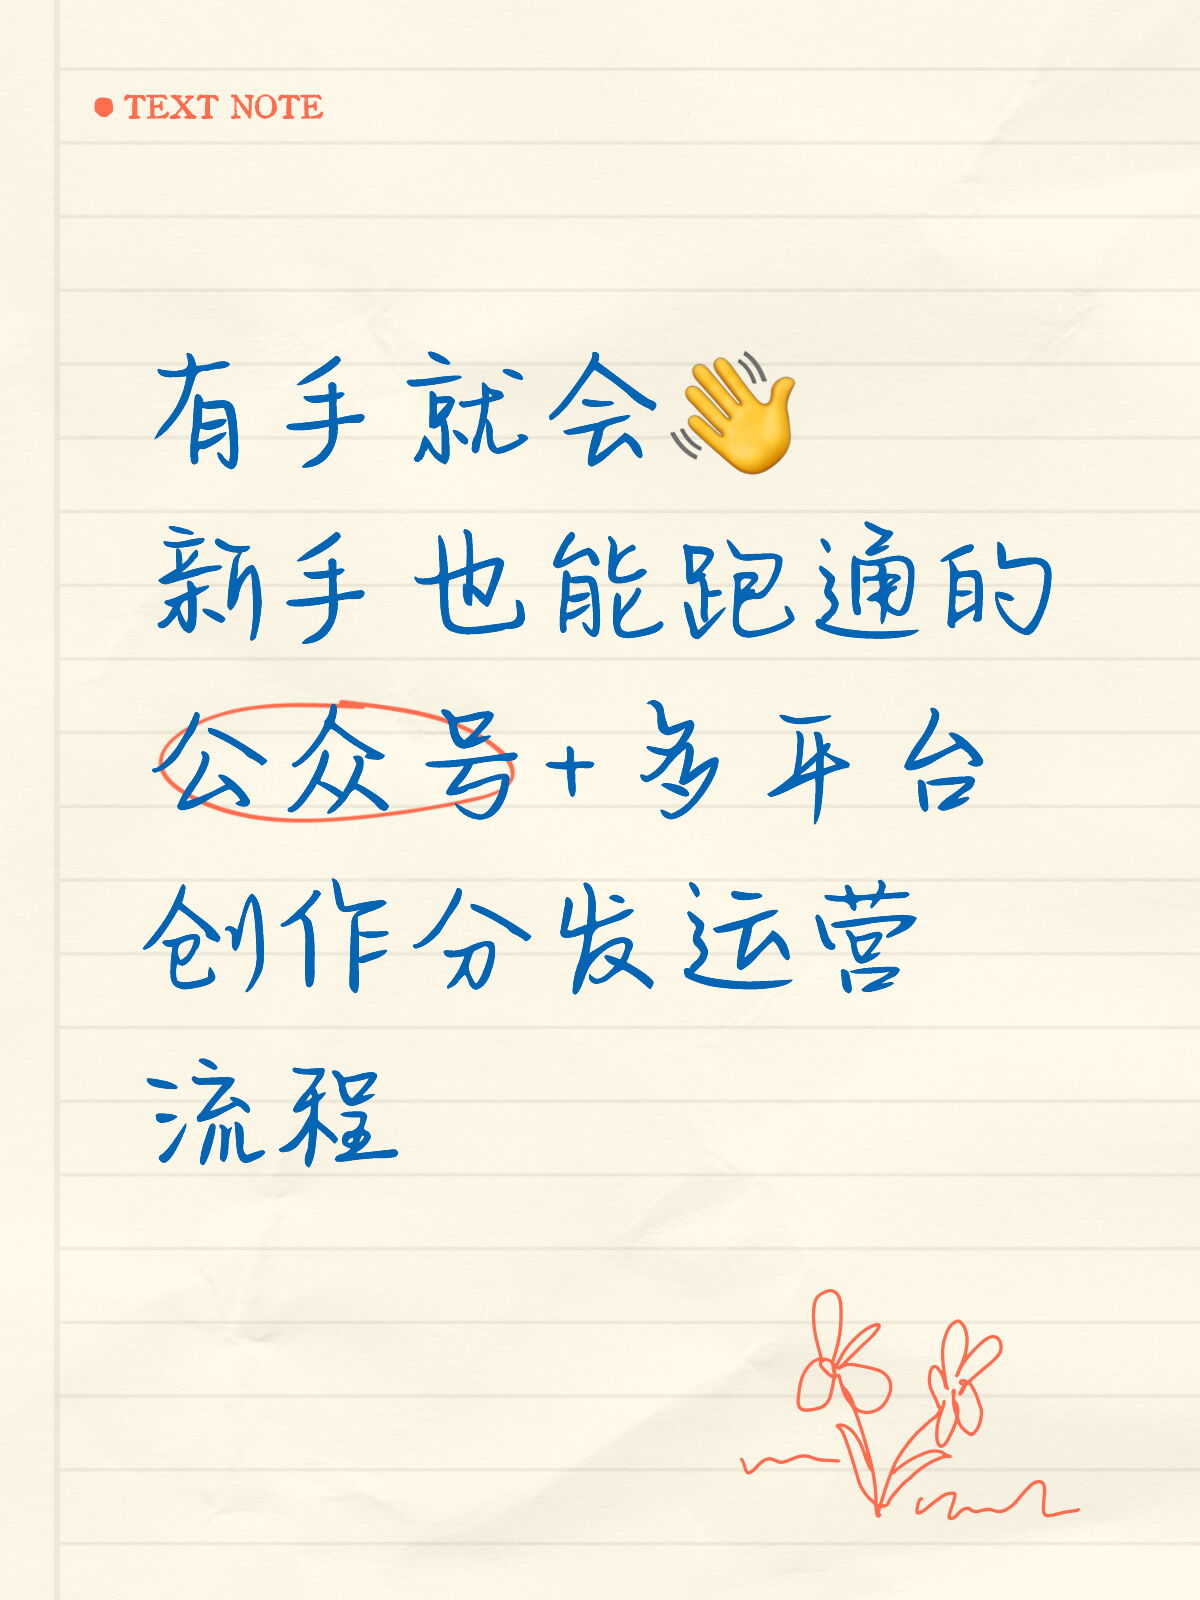 TEXT NOTE
有手就会👋
新手也能跑通的
公众号+多平台
创作分发运营
流程